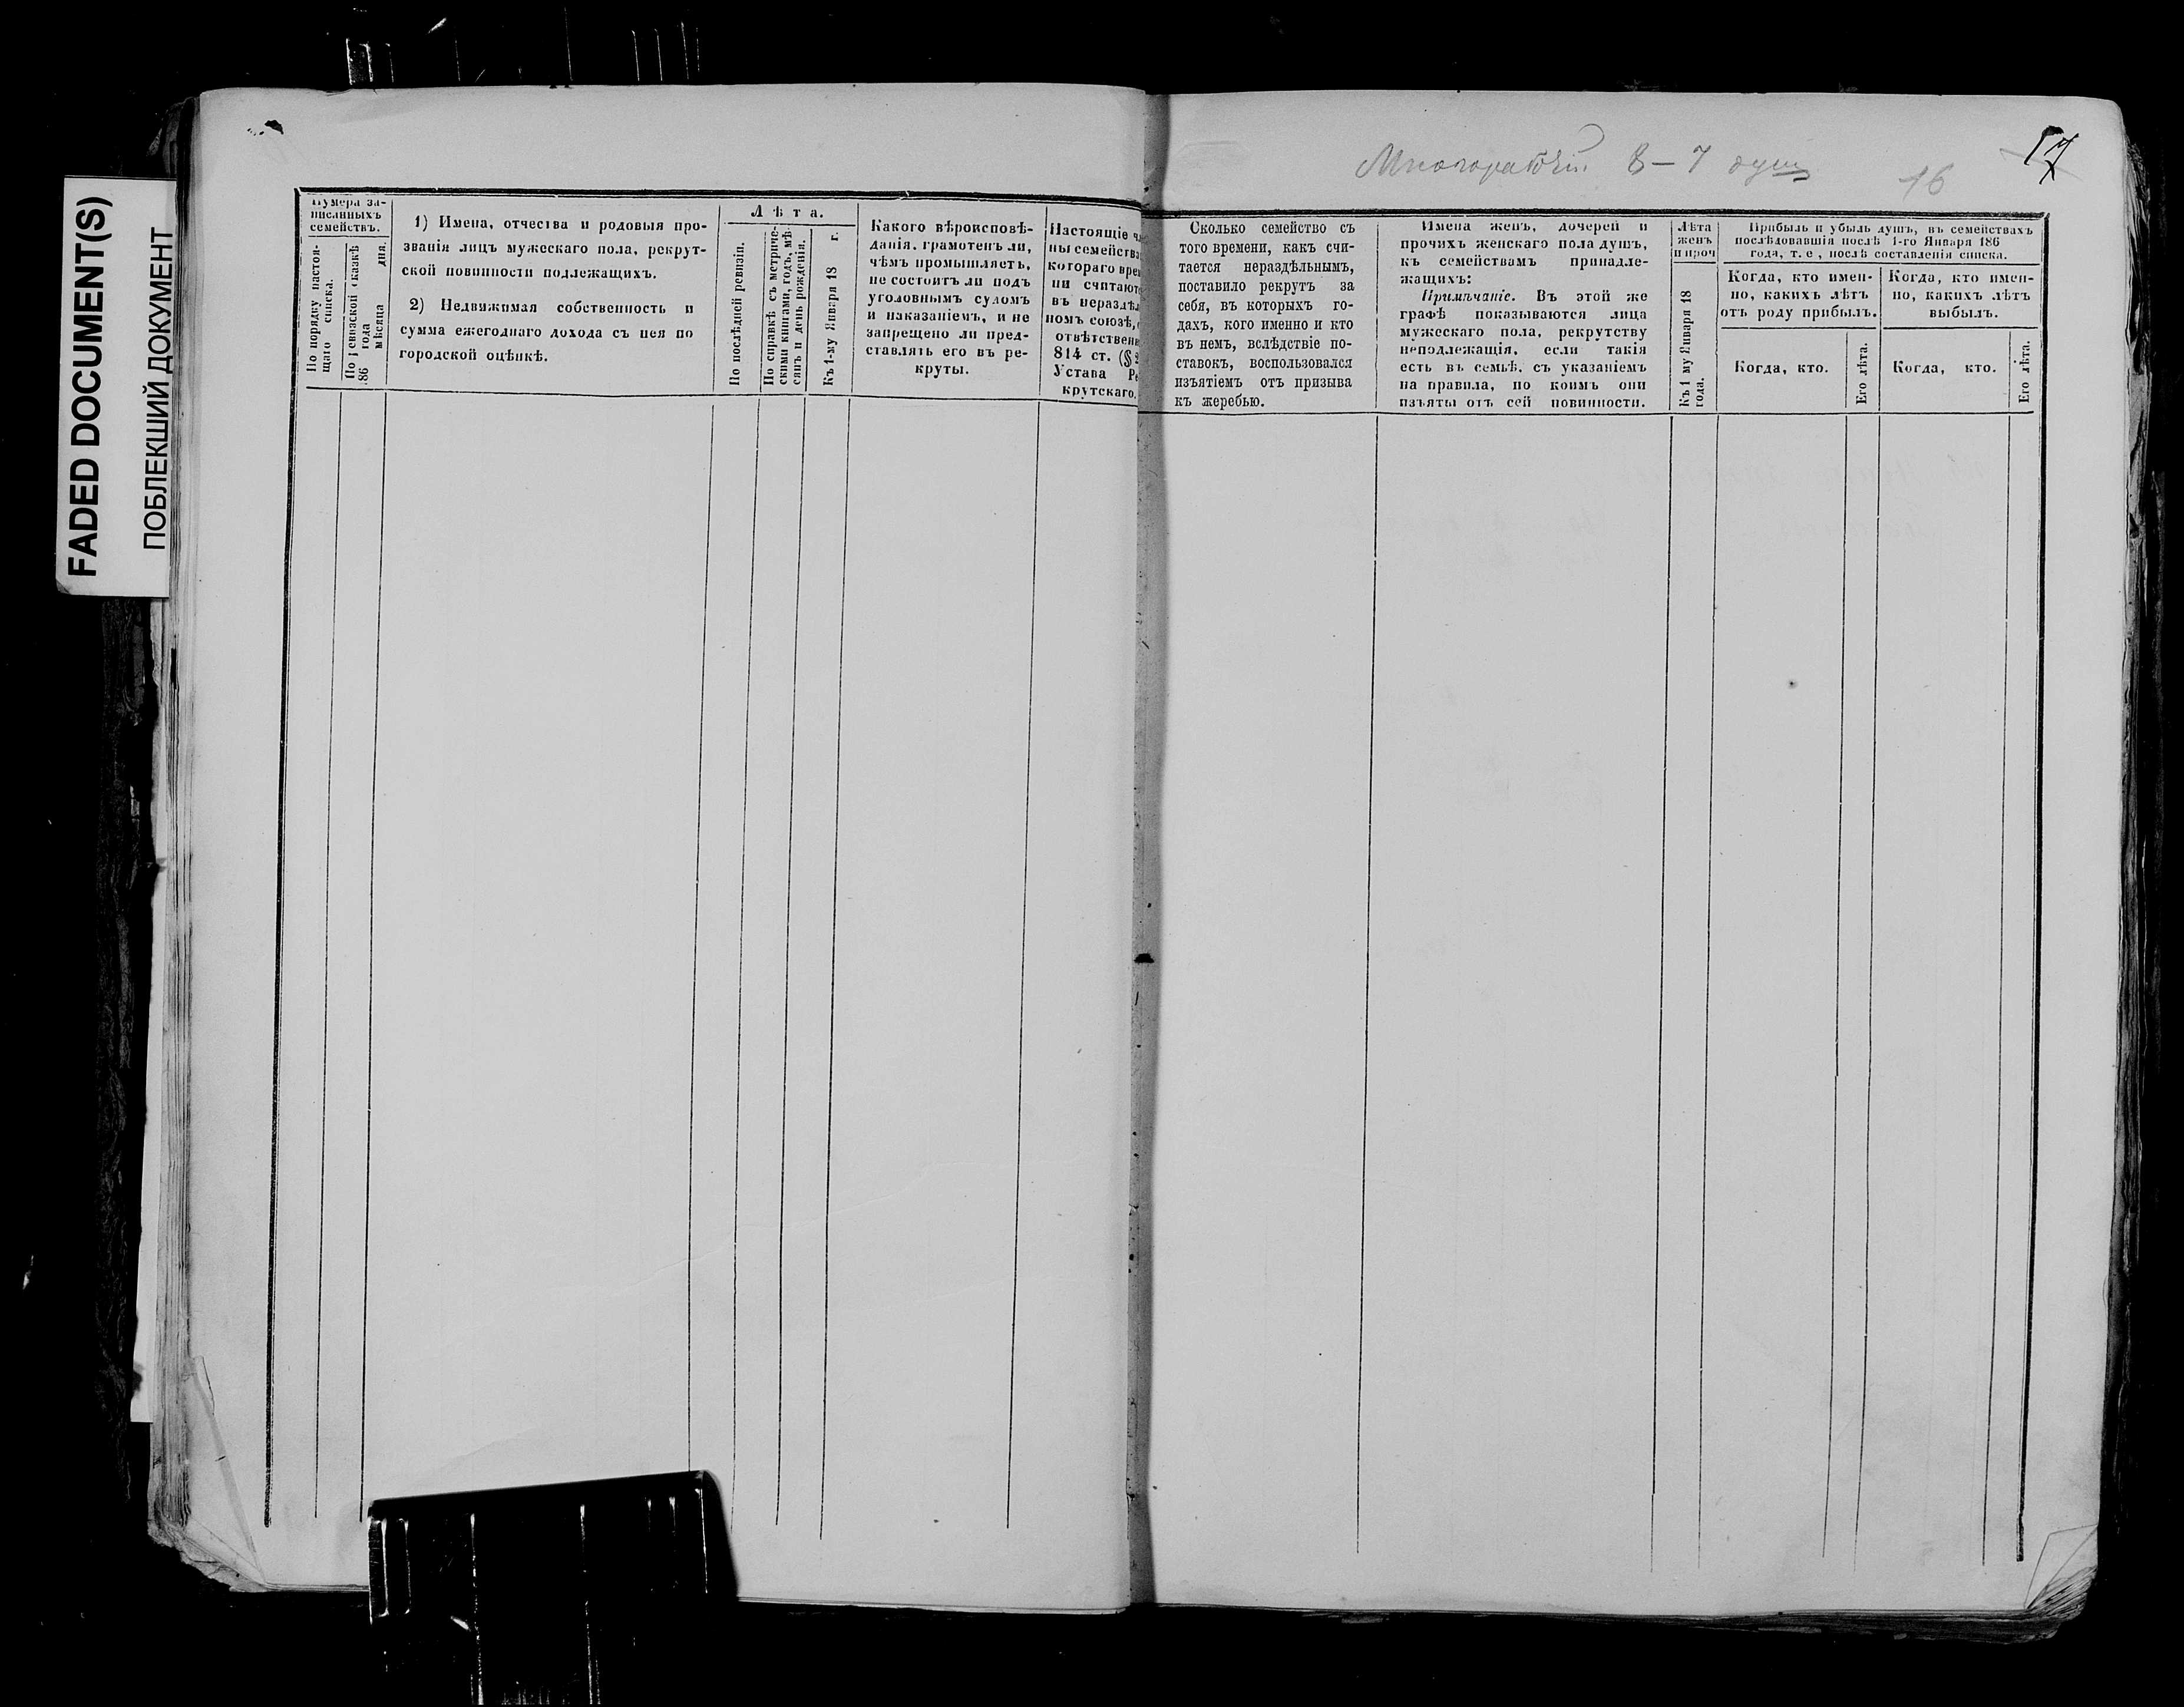 FADED DOCUMENT(S)
ПОБЛЕКШИЙ ДОКУМЕНТ
8 – 7 душ
16
17
Нумера за-
писанныхъ
семействъ.
По порядку настоя-
щаго списка.
По ревизской сказкѣ
186 года
мѣсяца дня.
1) Имена, отчества и родовыя про-
званія лицъ мужескаго пола, рекрут-
ской повинности подлежащихъ.
2) Недвижимая собственность и
сумма ежегоднаго дохода съ нея по
городской оцѣнкѣ.
Лѣта.
По послѣдней ревизіи.
По справкѣ съ метриче-
скими книгами, годъ, мѣ-
сяцъ и день рожденія.
Къ 1-му Января 18 г.
Какого вѣроисповѣ-
данія, грамотенъ ли,
чѣмъ промышляетъ,
не состоитъ ли подъ
уголовнымъ судомъ
и наказаніемъ, и не
запрещено ли пред-
ставлять его въ ре-
круты.
Настоящіе ч
ны семейства
котораго вре
ни считают
въ нераздѣл
номъ союзѣ,
отвѣтствен
814 ст. (§
Устава Ре
крутскаго.
Сколько семейство съ
того времени, какъ счи-
тается нераздѣльнымъ,
поставило рекрутъ за
себя, въ которыхъ го-
дахъ, кого именно и кто
въ немъ, вслѣдствіе по-
ставокъ, воспользовался
изъятіемъ отъ призыва
къ жеребью.
Имена женъ, дочерей и
прочихъ женскаго пола душъ,
къ семействамъ принадле-
жащихъ:
Примѣчаніе. Въ этой же
графѣ показываются лица
мужескаго пола, рекрутству
неподлежащія, если такія
есть въ семьѣ, съ указаніемъ
на правила, по коимъ они
изъяты отъ сей повинности.
Лѣта
женъ
и проч
Къ 1 му Января 18
года.
Прибыль и убыль душъ, въ семействахъ
послѣдовавшія послѣ 1-го Января 186
года, т. е., послѣ составленія списка.
Когда, кто имен-
но, какихъ лѣтъ
отъ роду прибылъ.
Когда, кто.
Его лѣта.
Когда, кто имен-
но, какихъ лѣтъ
выбылъ.
Когда, кто.
Его лѣта.